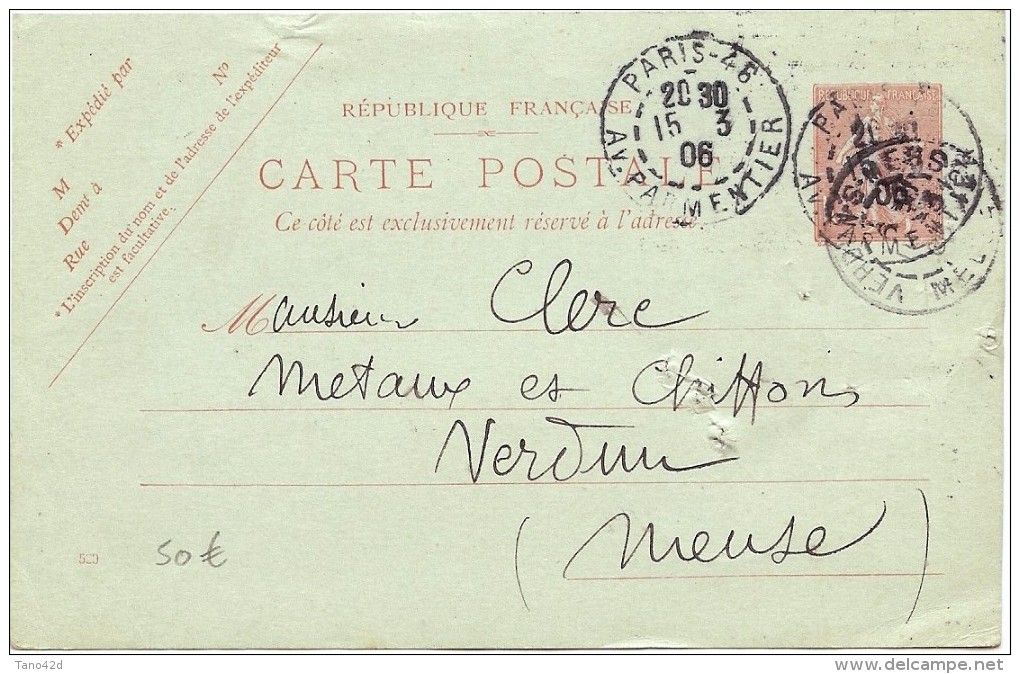 * Expédié par
N°
M
Demt à
Rue
* L'inscription du nom et de l'adresse de l'expéditeur
est facultative.
RÉPUBLIQUE FRANÇAISE
CARTE POSTALE
Ce côté est exclusivement réservé à l'adresse.
PARIS-46
20 30
15 3
06
AV. PARMENTIER
REPUBLIQUE FRANÇAISE
Monsieur Clerc
Metaux et Chiffons
Verdun
(Meuse)
50€
Tano42d
www.delcampe.net